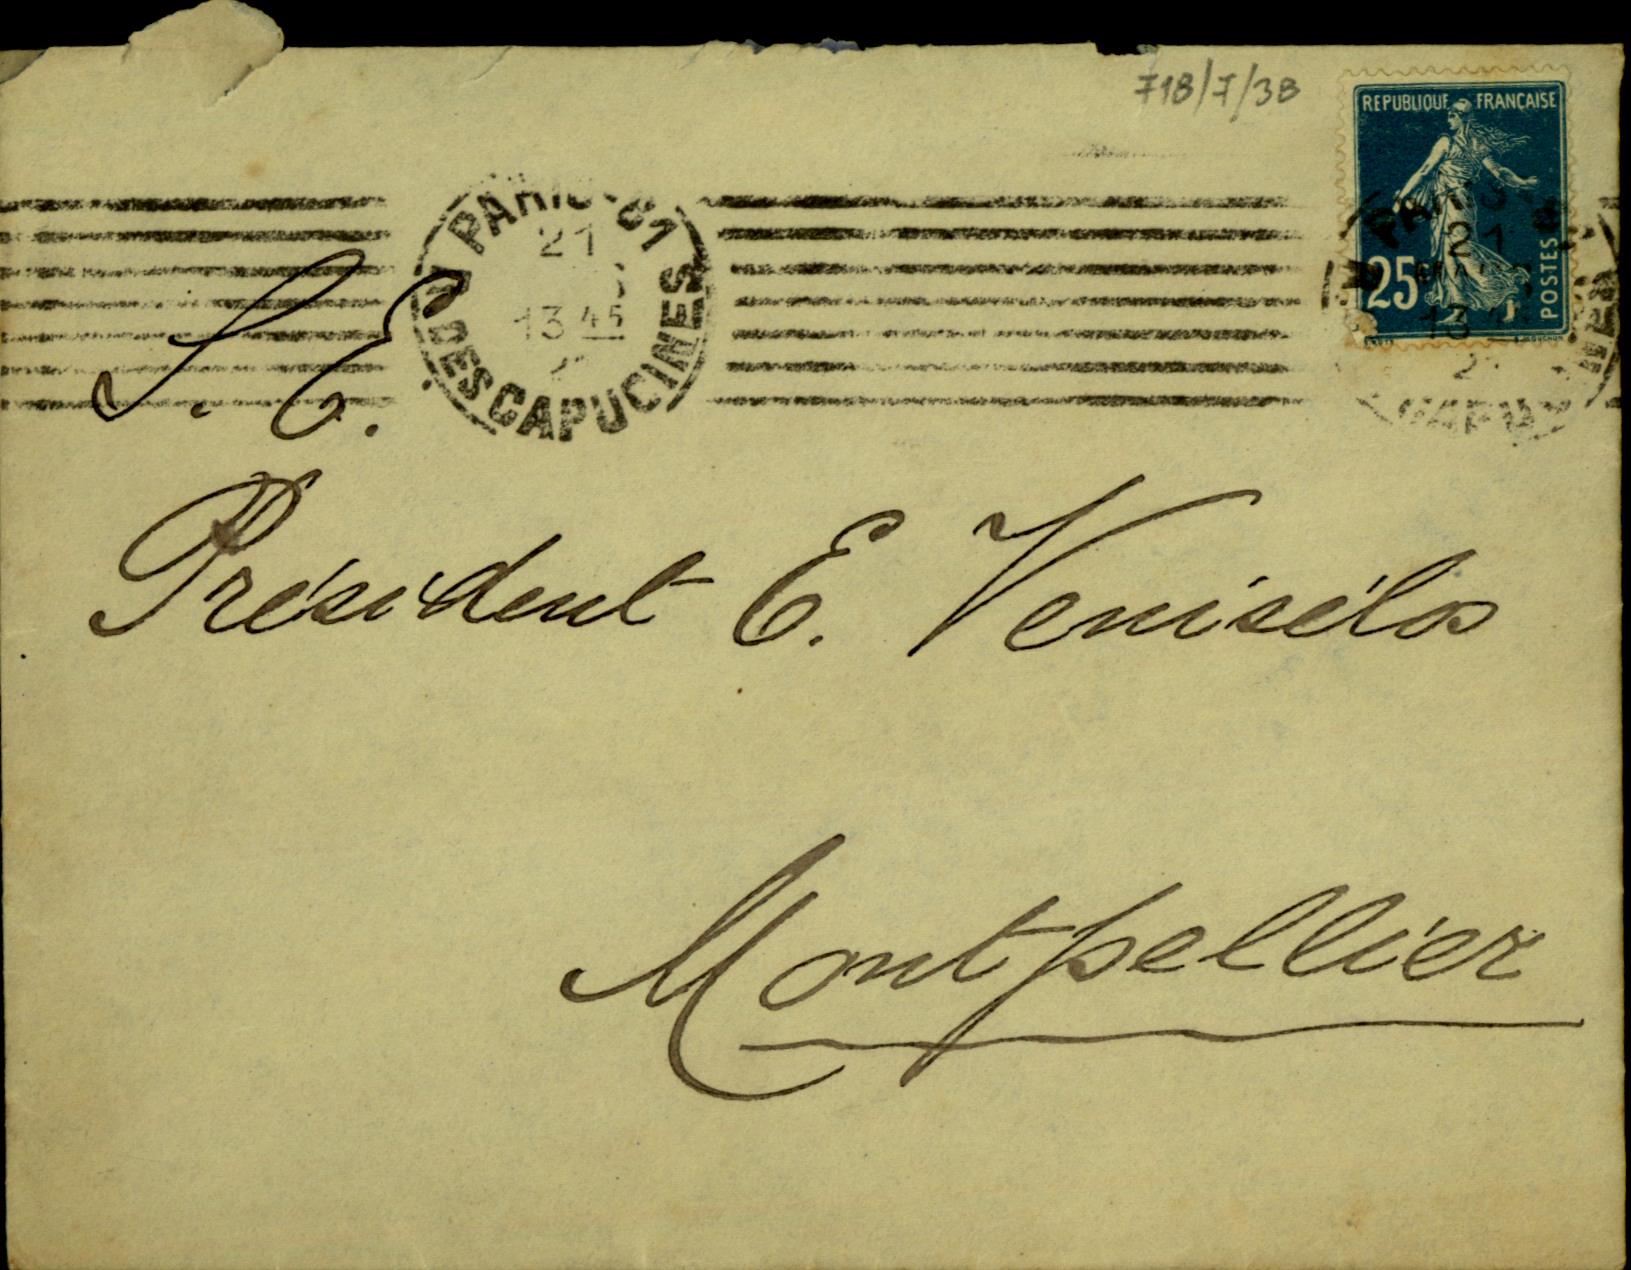 718/7/3B
REPUBLIQUE FRANÇAISE
25
POSTES
PARIS
21
13 45
DES CAPUCINES
PARIS
21
13
CAPU
S. E.
Président E. Venisélos
Montpellier